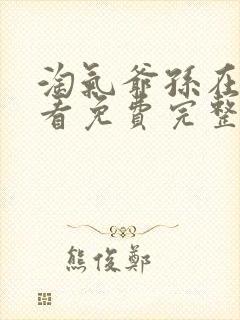 淘氣爺孫在
看免費完整
熊俊鄭